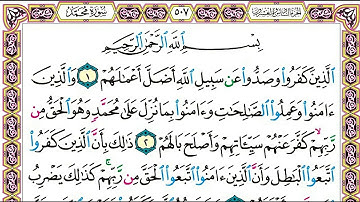 سُورَةُ مُحَمَّدٍ ٥٠٧ الجزء السادس والعشرون
بِسْمِ ٱللَّهِ ٱلرَّحْمَٰنِ ٱلرَّحِيمِ
ٱلَّذِينَ كَفَرُوا۟ وَصَدُّوا۟ عَن سَبِيلِ ٱللَّهِ أَضَلَّ أَعْمَٰلَهُمْ ١ وَٱلَّذِينَ
ءَامَنُوا۟ وَعَمِلُوا۟ ٱلصَّٰلِحَٰتِ وَءَامَنُوا۟ بِمَا نُزِّلَ عَلَىٰ مُحَمَّدٍ وَهُوَ ٱلْحَقُّ مِن
رَّبِّهِمْ كَفَّرَ عَنْهُمْ سَيِّـَٔاتِهِمْ وَأَصْلَحَ بَالَهُمْ ٢ ذَٰلِكَ بِأَنَّ ٱلَّذِينَ كَفَرُوا۟
ٱتَّبَعُوا۟ ٱلْبَٰطِلَ وَأَنَّ ٱلَّذِينَ ءَامَنُوا۟ ٱتَّبَعُوا۟ ٱلْحَقَّ مِن رَّبِّهِمْ ۚ كَذَٰلِكَ يَضْرِبُ